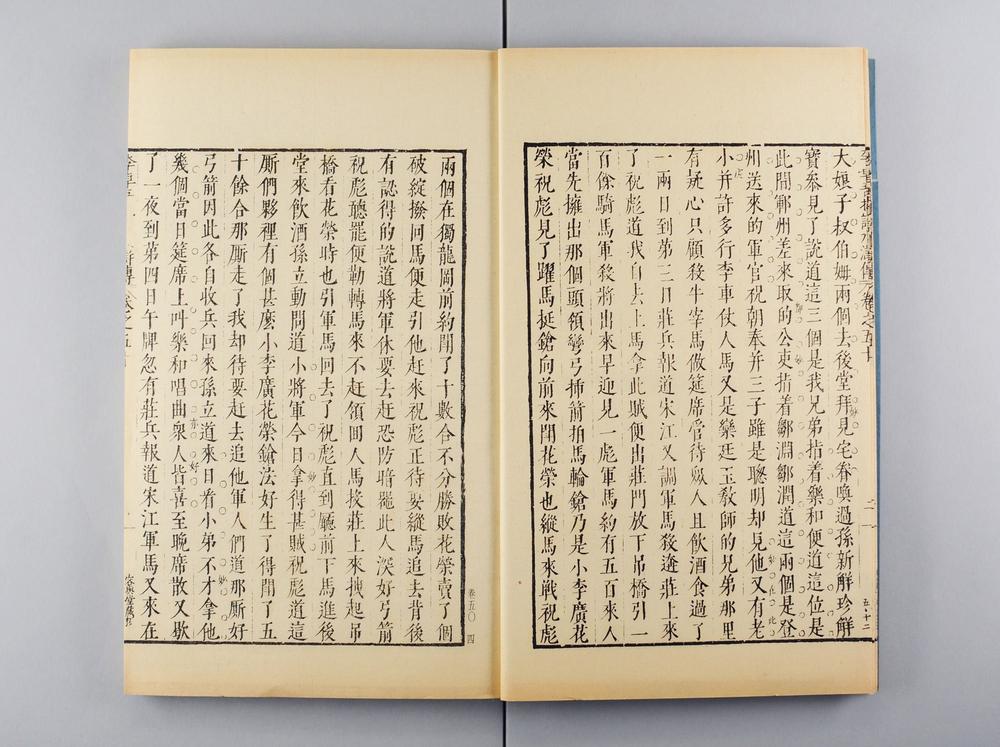 大嫂子叔伯姆兩個去後堂拜見宅眷喚過孫新解珍解
寶參見了說道這三個是我兄弟指着樂和便道這位是
此間鄆州差來取的公吏指着鄒淵鄒潤道這兩個是登
州送來的軍官祝朝奉并三子雖是聰明却見他又有老
小并許多行李車仗人馬又是欒廷玉教師的兄弟那里
有疑心只顧殺牛宰馬做筵席管待衆人且飲酒食過了
一兩日到第三日莊兵報道宋江又調軍馬殺逩莊上來
了祝彪道我自去上馬拿此賊便出莊門放下吊橋引一
百餘騎馬軍殺將出來早迎見一彪軍馬約有五百來人
當先擁出那個頭領彎弓揷箭拍馬輪鎗乃是小李廣花
榮祝彪見了躍馬挺鎗向前來鬪花榮也縱馬來戰祝彪
卷五〇 四
兩個在獨龍岡前約鬪了十數合不分勝敗花榮賣了個
破綻撥回馬便走引他赶來祝彪正待要縱馬追去背後
有認得的說道將軍休要去赶恐防暗器此人深好弓箭
祝彪聽罷便勒轉馬來不赶領回人馬投莊上來拽起吊
橋看花榮時也引軍馬回去了祝彪直到廳前下馬進後
堂來飲酒孫立動問道小將軍今日拿得甚賊祝彪道這
厮們夥裡有個甚麽小李廣花榮鎗法好生了得鬪了五
十餘合那厮走了我却待要赶去追他軍人們道那厮好
弓箭因此各自收兵回來孫立道來日看小弟不才拿他
幾個當日筵席上叫樂和唱曲衆人皆喜至晚席散又歇
了一夜到第四日午牌忽有莊兵報道宋江軍馬又來在
容與堂藏板